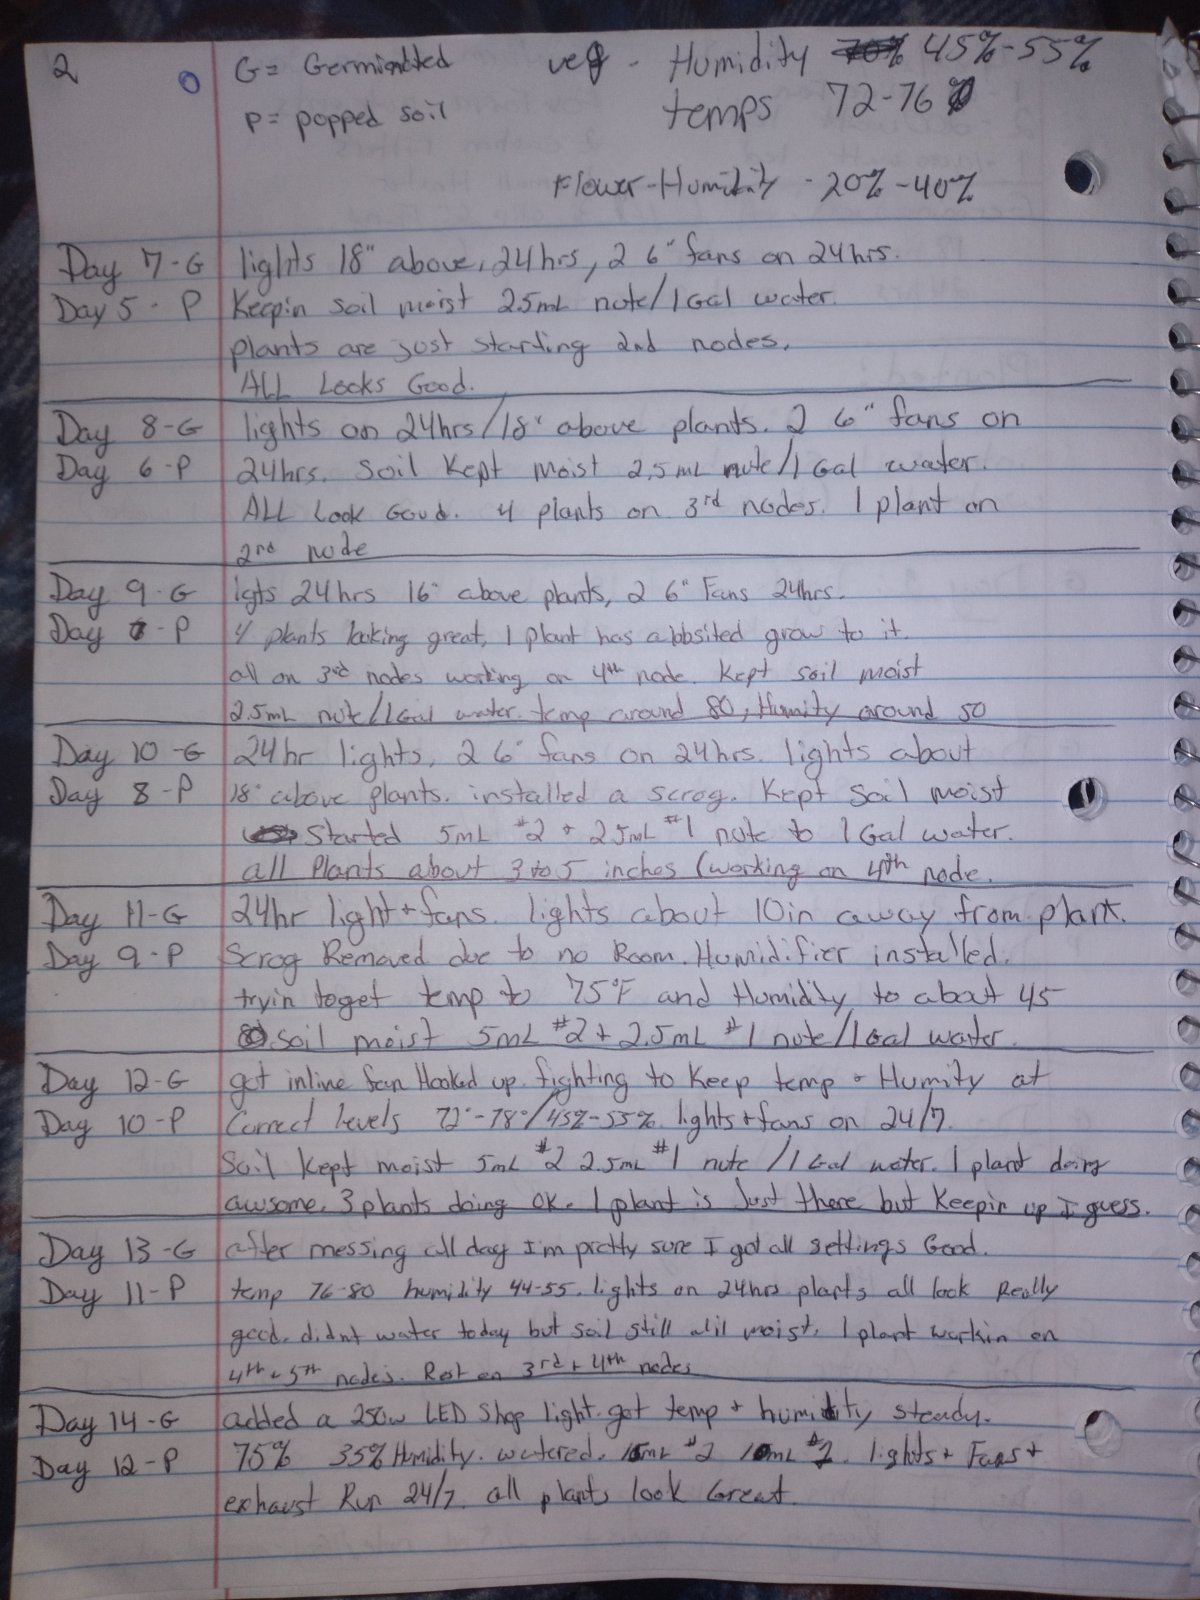 2
G= Germindted veg - Humidity 45%-55%
p= popped soil temps 72-76
Flower-Humidity - 20% -40%
Day 7-G lights 18" above, 24hrs, 2 6" fans on 24hrs.
Day 5 - P Keepin soil moist 2.5mL nute/1Gal water.
plants are just starting 2nd nodes.
ALL Looks Good.
Day 8-G lights on 24hrs/18" above plants. 2 6" fans on
Day 6-P 24hrs. Soil Kept moist 2.5mL nute/1Gal water.
ALL Look Good. 4 plants on 3rd nodes. 1 plant on
2nd node
Day 9-G igts 24hrs 16" above plants, 2 6" Fans 24hrs.
Day 7-P 4 plants looking great, 1 plant has abbsited grow to it.
all on 3rd nodes working on 4th node. Kept soil moist
2.5mL nute/1Gal water. temp around 80, Humity around 50
Day 10-G 24hr lights, 2 6" fans on 24hrs. lights about
Day 8-P 18" above plants. installed a scrog. Kept soil moist
Started 5mL #2 + 2.5mL #1 nute to 1Gal water.
all Plants about 3 to 5 inches (working on 4th node.
Day 11-G 24hr light+fans. lights about 10in away from plant.
Day 9-P Scrog Removed due to no Room. Humidifier installed.
tryin to get temp to 75°F and Humidity to about 45
soil moist 5mL #2 + 2.5mL #1 nute/1Gal water.
Day 12-G got inline fan Hooked up. fighting to Keep temp + Humity at
Day 10-P Correct levels 72°-78°/45%-55%. lights+fans on 24/7.
Soil Kept moist 5mL #2 2.5mL #1 nute /1Gal water. 1 plant doing
awsome. 3 plants doing OK. 1 plant is Just there but Keepin up I guess.
Day 13-G after messing all day I'm pretty sure I got all settings Good.
Day 11-P temp 76-80 humidity 44-55. lights on 24hrs plants all look Really
good. didnt water today but soil still alil moist. 1 plant workin on
4th + 5th nodes. Rest on 3rd + 4th nodes
Day 14-G added a 250w LED Shop light. got temp + humitity steady.
Day 12-P 75% 35% Humidity. watered. #2 10mL lights + Fans +
exhaust Run 24/7. all plants look Great.